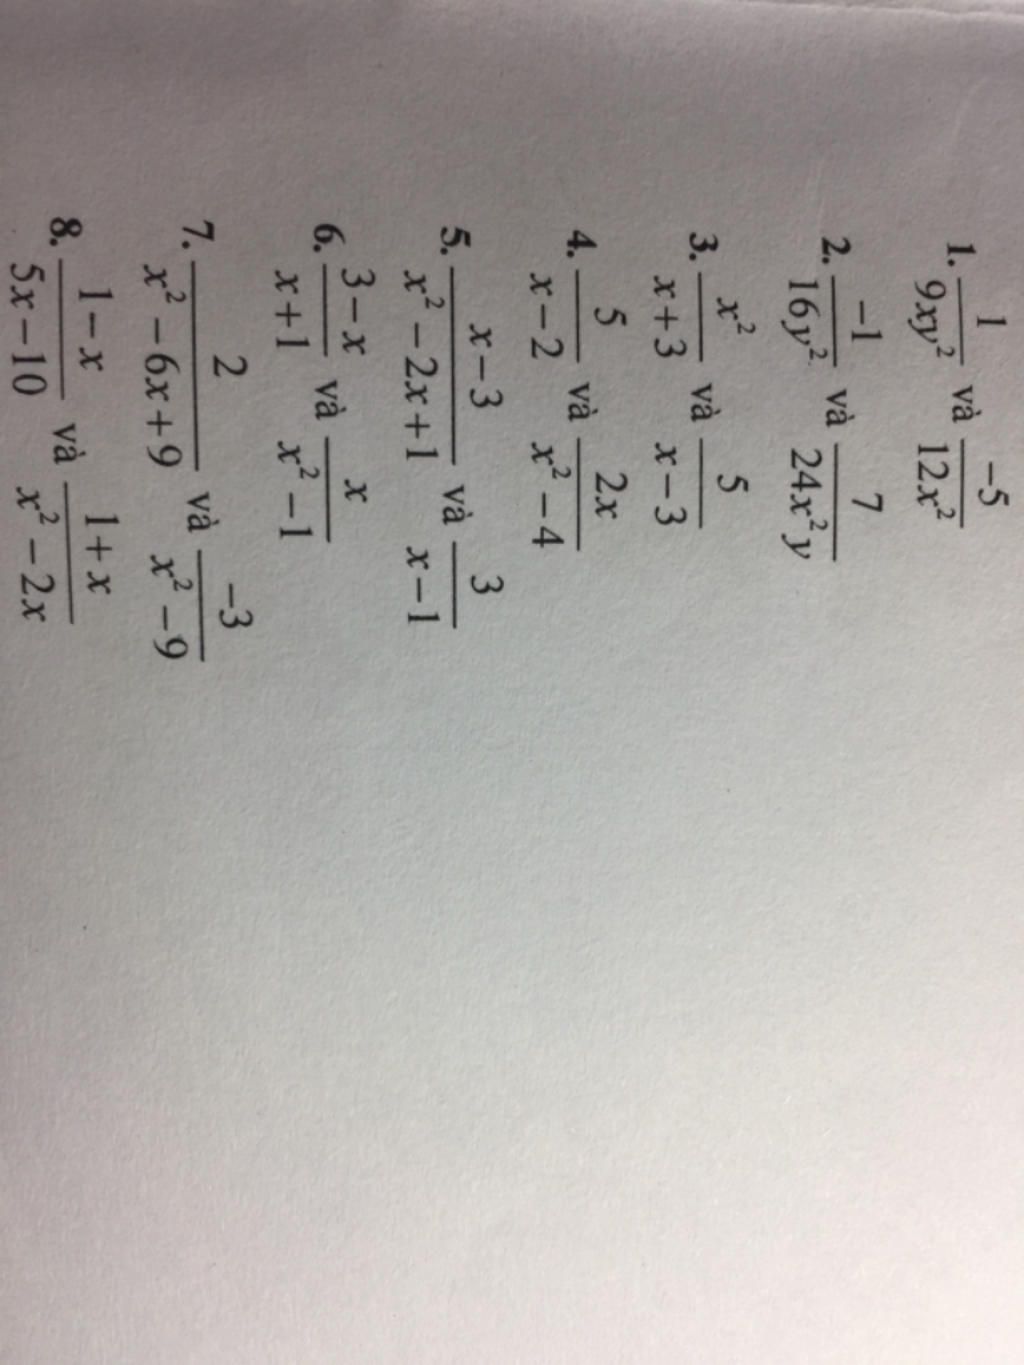 1. \frac{1}{9xy^2} và \frac{-5}{12x^2}
2. \frac{-1}{16y^2} và \frac{7}{24x^2y}
3. \frac{x^2}{x+3} và \frac{5}{x-3}
4. \frac{5}{x-2} và \frac{2x}{x^2-4}
5. \frac{x-3}{x^2-2x+1} và \frac{3}{x-1}
6. \frac{3-x}{x+1} và \frac{x}{x^2-1}
7. \frac{2}{x^2-6x+9} và \frac{-3}{x^2-9}
8. \frac{1-x}{5x-10} và \frac{1+x}{x^2-2x}